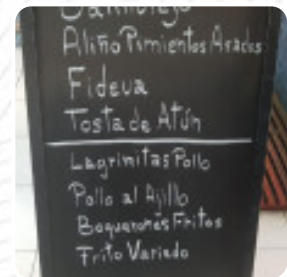 Aliño Pimientos Asados
Fideua
Tosta de Atún
Lagrimitas Pollo
Pollo al Ajillo
Boquerones Fritos
Frito Variado